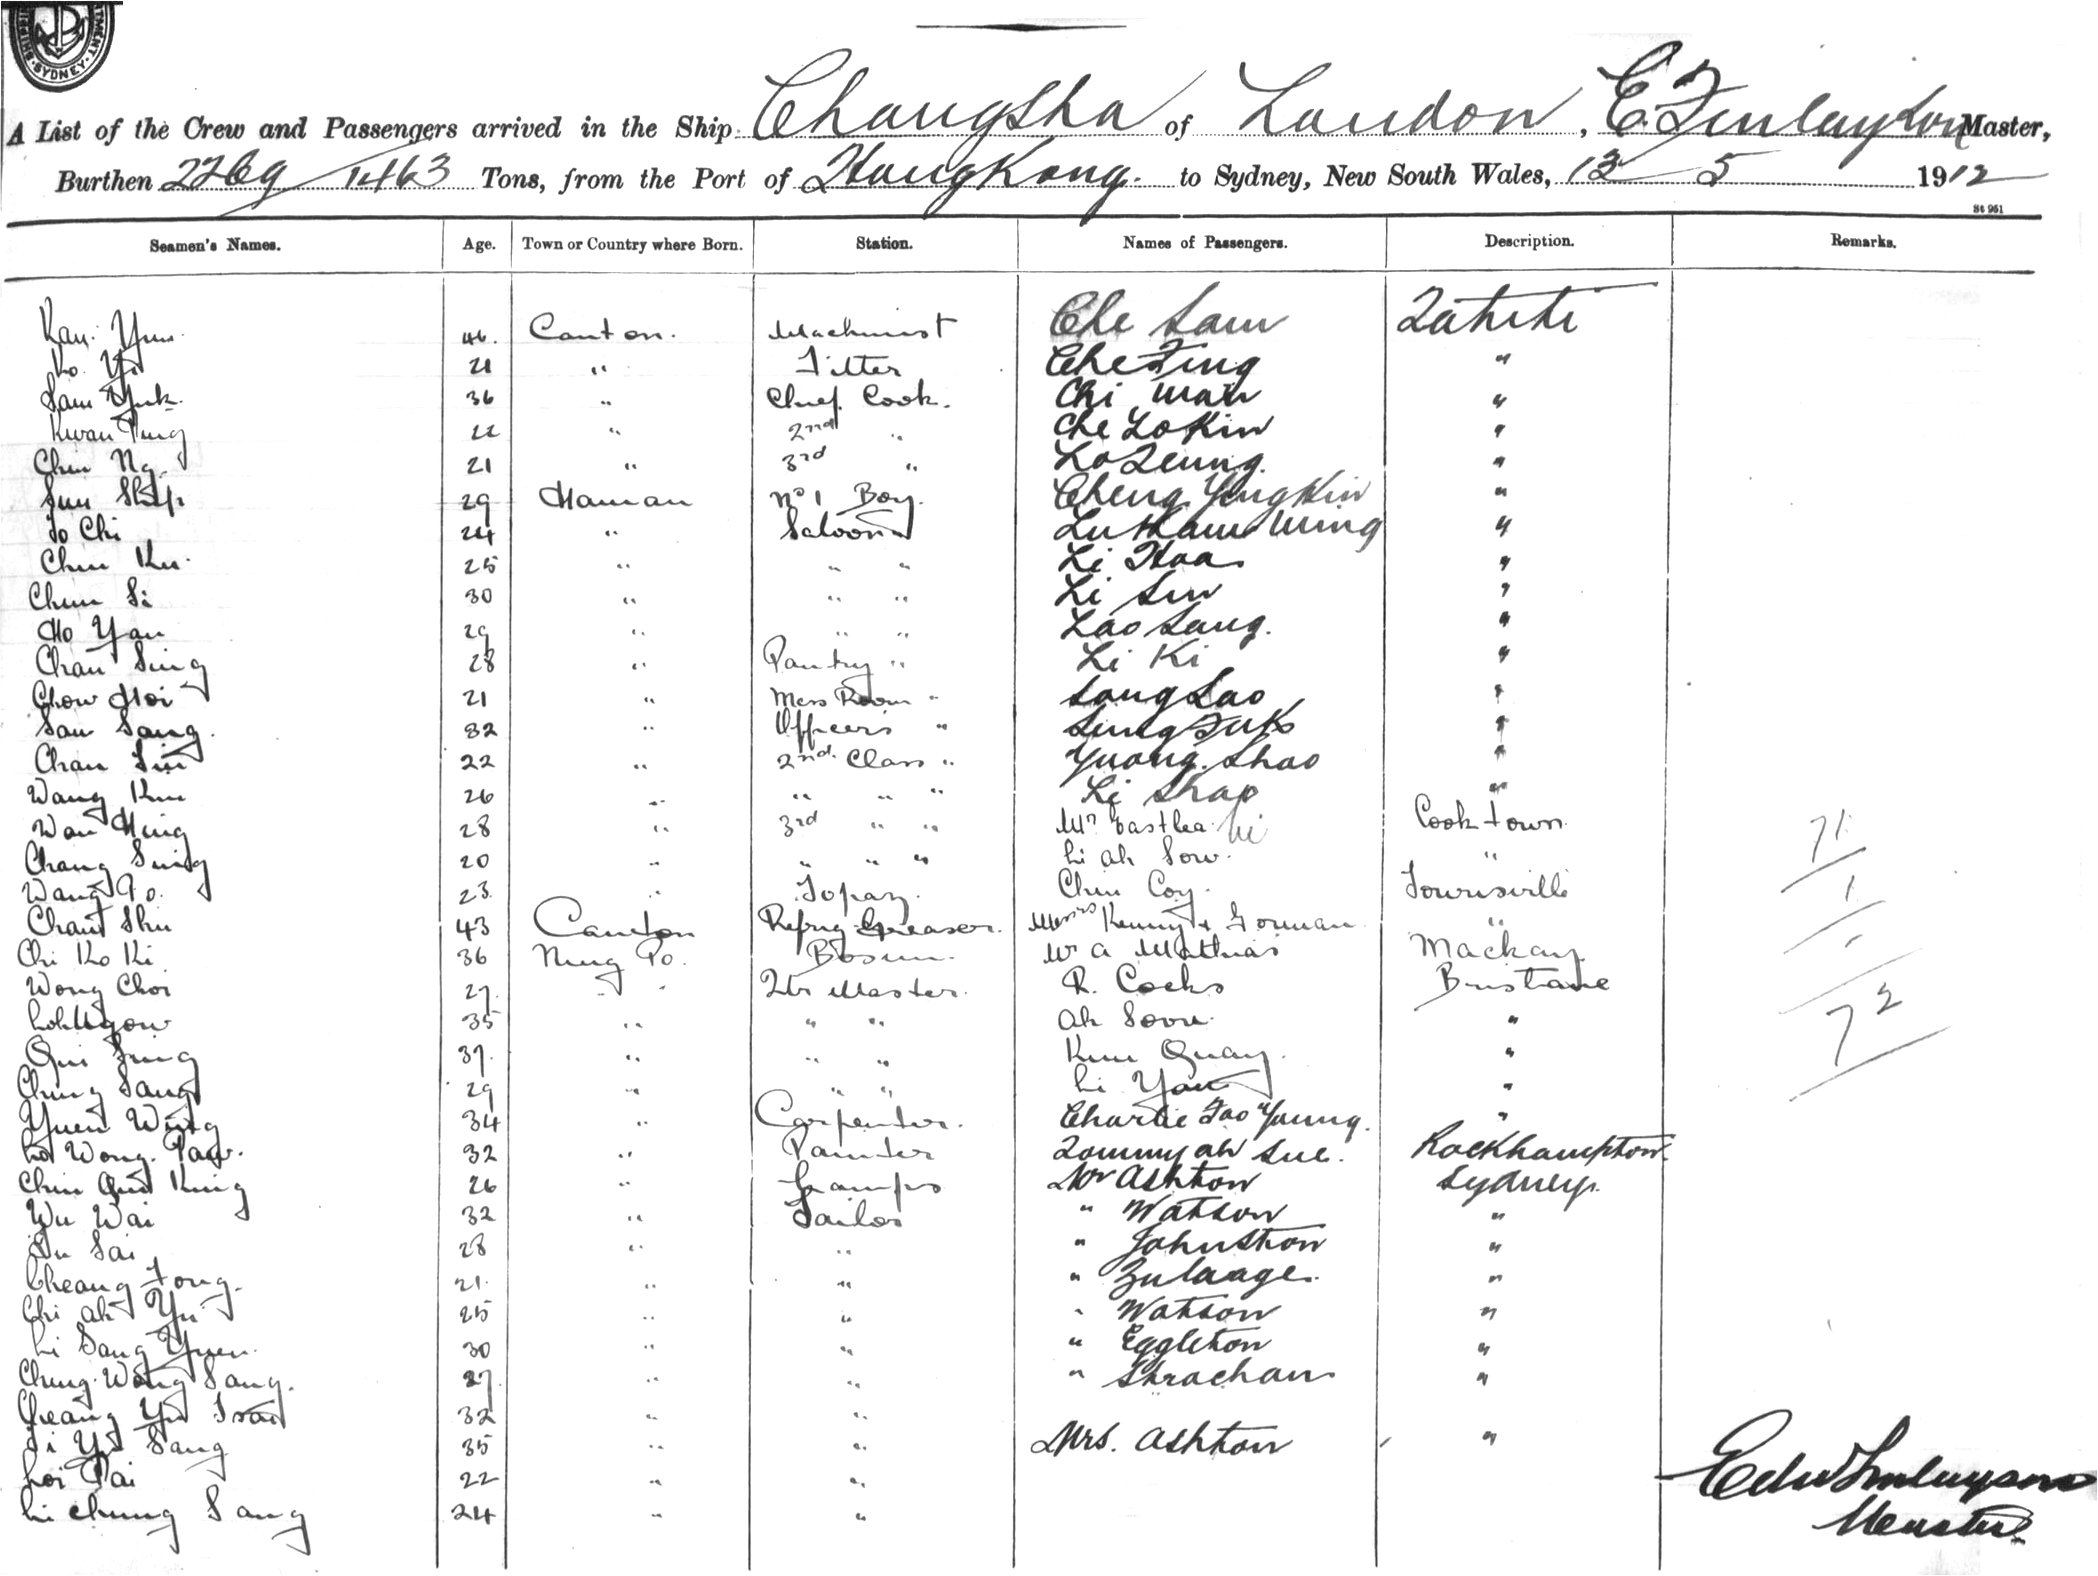 SHIPPING DEPARTMENT SYDNEY
A List of the Crew and Passengers arrived in the Ship Changsha of London, E. Finlayson Master,
Burthen 2269 1463 Tons, from the Port of Hong Kong. to Sydney, New South Wales, 13 5 1912
St 961
Seamen's Names. Age. Town or Country where Born. Station. Names of Passengers. Description. Remarks.
Kau Yuu 46. Canton. Machinist Che Sam Tahiti
Ko Yi 21 " Fitter Che Fing "
Sam Yuk 36 " Chief Cook. Chi Wan "
Kwan Ping 22 " 2nd " Che Lo Kin "
Chin Ng 21 " 3rd " Lo Leung "
Sun Ship 29 Hainan No 1 Boy. Cheng Yung Kin "
To Chi 24 " Saloon " Lu Kam Wing "
Chin Ku 25 " " " Li Hoa "
Chun Si 30 " " " Li Sin "
Ho Yan 29 " " " Lao Sang. "
Chan Sing 28 " Pantry " Li Ki "
Chow Hoi 21 " Mess Room " Long Lao "
San Sang 32 " Officers " Sung Fuk "
Chan Sin 22 " 2nd Class " Yuong Shao "
Wang Kin 26 " " " " Li Shao "
Wan Hing 28 " 3rd " " Mr Eastlea Cooktown 71
Chang Sing 20 " " " " Li Ah Sow. "
Wang Po. 23 " Topaz. Chin Coy. Townsville 1
Chan Shu 43 Canton Refrig Greaser. Messrs Kenny & Gorman "
Chi Ko Ki 36 Ning Po. Bosun. Mr A Matthias Mackay
Wong Choi 27 " Qtr Master. R. Cocks Brisbane 72
35 " " " Ah Soou "
Qui Sing 37 " " " Kum Quay. "
Ching Sang 29 " " " Li Yan "
Yuen Wing 34 " Carpenter. Charlie Tao Young. "
Wong 32 " Painter Tommy Ah Sue. Rockhampton
Chin King 26 " Lamps Mr Ashton Sydney.
Wu Wai 32 " Sailor " Watson "
Su Sai 28 " " " Johnston "
Cheang Fong. 21 " " " Zulaage. "
Chi Ah Yu 25 " " " Watson "
Li Sang Yuen. 30 " " " Eggleton "
Chung Wong Sang. 27 " " " Strachan "
Cheang Yu Tsai 32 " "
Li Yu Sang 35 " " Mrs. Ashton "
Loi Pai 22 " " Edw Finlayson
Li Chung Sang 24 " " Master